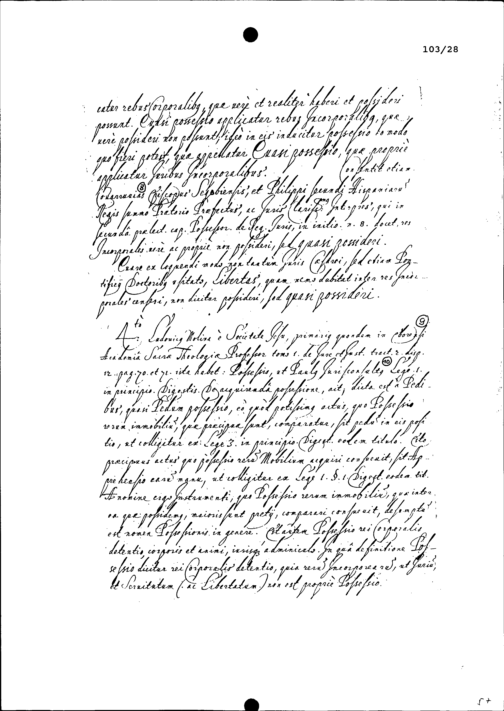 103/28
catur rebus Corporalibq, quae verè et realitèr haberi et possideri
possunt. Quasi possessio applicatur rebus Incorporalibq, quae
verè possideri non possunt, sed in eis inducitur possessio eo modo
quo fieri potest, quae appellatur Quasi possessio, quae propriè
applicatur Juribus Incorporalibus. Consentit etiam
8
Episcopus Segobiensis, et Philippi secundi Hispaniarũ
Regis summo Praetorio Praefectus, ac Juris Clarissimus Interpres, qui in
secunda praelect. cap. Possessor. de Reg. Juris, in initio. n. 8. docet, res
Incorporales verè ac propriè non possideri, sed quasi possideri.
Quare ex loquendi modo non tantum Juris Caesarei, sed etiam Pon-
tificij Doctoribq usitato, Libertas, quam nemo dubitat inter res Incor-
porales censeri, non dicitur possideri, sed quasi possideri.
9
4.to Ludovicq Molina è Societate Jesu, primariq quondam in
Academia Sacrae Theologiae Professor tomo 1. de Just. et Jure tract. 2. disp.
12. pag. 70. et 71. ita habet: Possessio, ut Paulq Jurisconsultq Lege 1.
10
in principio. Digestis. De acquirenda possessione, ait, dicta est à Pedi
bus, quasi Pedum possessio, eo quod potissimq actus, quo Possessio
rerum immobiliũ, quae praecipuae sunt, comparatur, sit pedũ in eis posi
tio, ut colligitur ex Lege 3. in principio Digest. eodem titulo.
praecipuus actus quo possessio rerũ Mobilium acquiri consuevit, sit Ap-
prehensio earũ manu, ut colligitur ex Lege 1. §. 1. Digest. eodem tit.
A nomine ergo Instrumenti, quo Possessio rerum immobiliũ, quae inter
ea quae possidemq, maioris sunt pretij, comparari consuevit, desumptũ
est nomen Possessionis in genere. Est autem Possessio rei Corporalis
detentio, corporis et animi, iurisq adminiculo. In qua definitione Pos-
sessio dicitur rei Corporalis detentio, quia rerũ Incorporearũ, ut Juriũ,
et Servitutum (ac Libertatum) non est propriè Possessio.